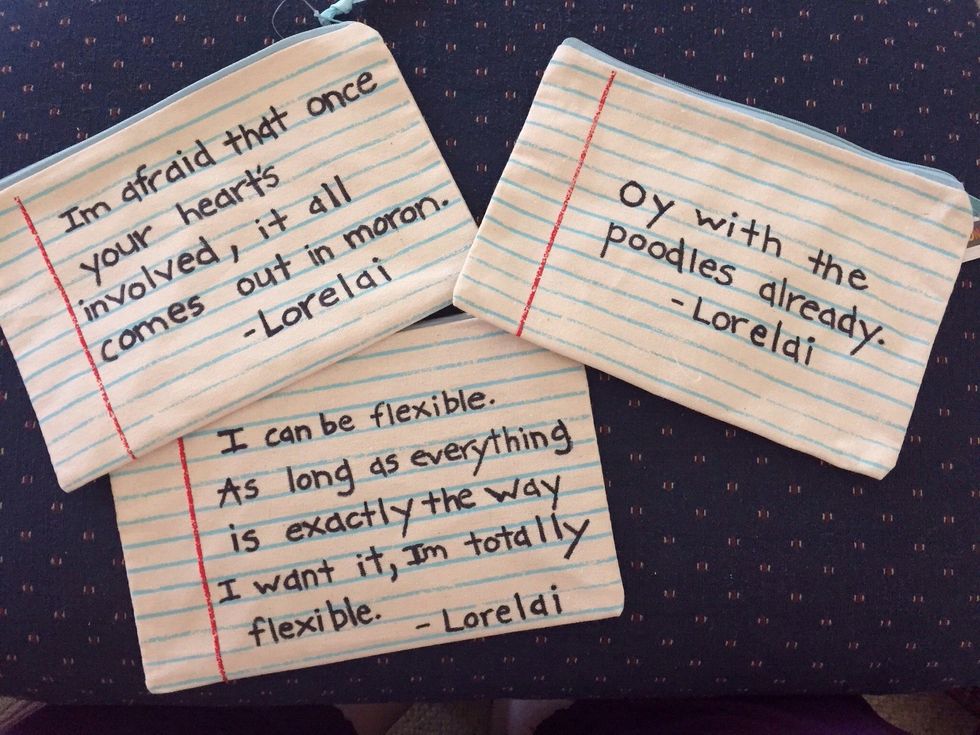 Im afraid that once
your heart's
involved, it all
comes out in moron.
-Lorelai
Oy with the
poodles already.
-Lorelai
I can be flexible.
As long as everything
is exactly the way
I want it, Im totally
flexible. -Lorelai